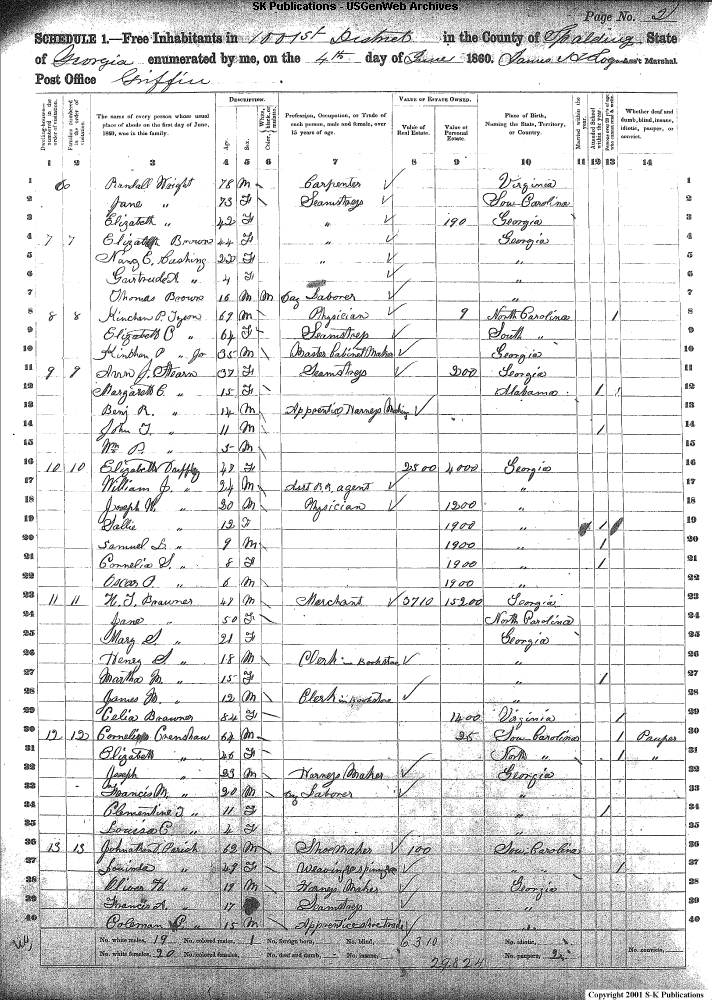 SK Publications - USGenWeb Archives
Page No. 2
SCHEDULE 1.—Free Inhabitants in 1001st District in the County of Spalding State
of Georgia enumerated by me, on the 4th day of June 1860. James Ass't Marshal
Post Office Griffin
Dwelling-houses—numbered in the order of visitation.
Families numbered in the order of visitation.
The name of every person whose usual place of abode on the first day of June, 1860, was in this family.
DESCRIPTION.
Age.
Sex.
Color, White, black, or mulatto.
Profession, Occupation, or Trade of each person, male and female, over 15 years of age.
VALUE OF ESTATE OWNED.
Value of Real Estate.
Value of Personal Estate.
Place of Birth, Naming the State, Territory, or Country.
Married within the year.
Attended School within the year.
Persons over 20 y'rs of age who cannot read & write.
Whether deaf and dumb, blind, insane, idiotic, pauper, or convict.
1 2 3 4 5 6 7 8 9 10 11 12 13 14
1 6 Randall Wright 78 M Carpenter Virginia 1
2 Jane " 73 F Seamstress Sou Carolina 2
3 Elizabeth " 42 F " 190 Georgia 3
4 7 7 Elizabeth Brown 44 F " Georgia 4
5 Nancy E. Cushing 22 F " " 5
6 Gairtrude A " 4 F " 6
7 Thomas Brown 16 M M Day Laborer " 7
8 8 8 Kinchen P. Tyson 69 M Physician 9 North Carolina / 8
9 Elizabeth C " 64 F Seamstress South " 9
10 " Jr 35 M Master Cabinet Maker Georgia 10
11 9 9 Ann J. Stearn 37 F Seamstress 200 Georgia 11
12 Margarett C. " 15 F Alabama / / 12
13 Benj R. " 14 M Apprentice Harness Making 13
14 John T. " 11 M / 14
15 Wm " 5 M 15
16 10 10 Elizabeth 48 F 2500 4000 Georgia 16
17 William J. " 24 M Asst R.R. agent " 17
18 Joseph " 20 M Physician 1200 " 18
19 Sallie " 12 F 1900 " / 19
20 Samuel L. " 9 M 1900 " / 20
21 Cornelia S. " 8 F 1900 " / 21
22 Oscar " 6 M 1900 " 22
23 11 11 Brawner 49 M Merchant 3710 15200 Georgia 23
24 Jane " 50 F North Carolina 24
25 Mary S " 21 F Georgia 25
26 Henry S " 18 M Clerk in Bookstore " 26
27 Martha M. " 15 F " / 27
28 James M. " 12 M Clerk in Bookstore " 28
29 Celia Brawner 84 F 1400 Virginia / 29
30 12 12 Cornelius Crenshaw 64 M 25 Sou Carolina / Pauper 30
31 Elizabeth " 46 F North " / " 31
32 Joseph " 23 M Harness Maker Georgia 32
33 Francis M. " 20 M Day Laborer " 33
34 Clementine T. " 11 F " / 34
35 Louisa C. " 4 F " 35
36 13 13 Parish 62 M Shoe Maker 100 Sou Carolina 36
37 " 49 F Weaving & spinning " " / 37
38 Oliver H. " 19 M Harness Maker Georgia 38
39 Francis A. " 17 Seamstress " 39
40 Coleman " 15 M Apprentice " 40
No. white males, 19 No. colored males, 1 No. foreign born, No. blind, 6310 No. idiotic,
No. white females, 20 No. colored females, No. deaf and dumb, No. insane, 29824 No. paupers, 2 No. convicts,
Copyright 2001 S-K Publications